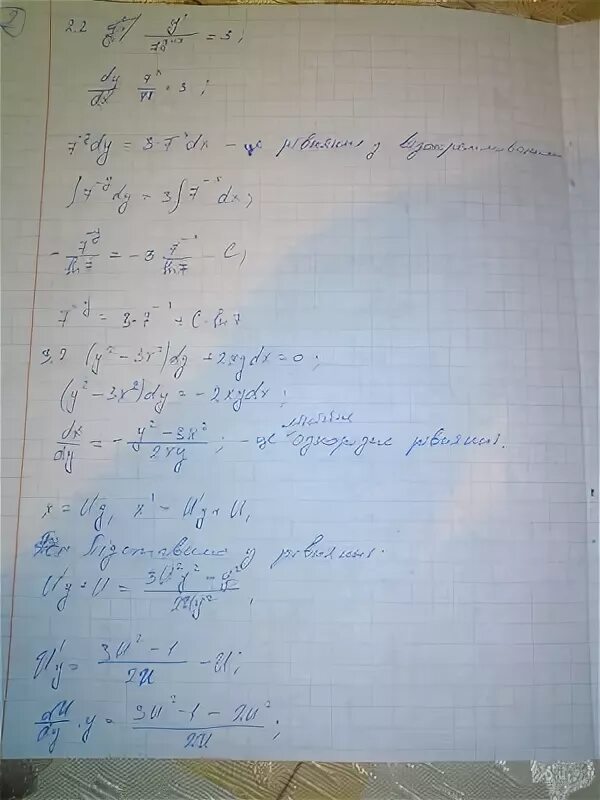 2
2.2 y' / 7^{y-x} = 3;
dy/dx · 7^x/7^y = 3;
7^{-y}dy = 3·7^{-x}dx - це рівняння з
∫7^{-y}dy = 3∫7^{-x}dx;
- 7^{-y}/ln7 = -3 7^{-x}/ln7 - C;
7^{-y} = 3·7^{-x} + C·ln7
3.2 (y² - 3x²)dy + 2xydx = 0;
(y² - 3x²)dy = -2xydx;
dx/dy = - (y² - 3x²)/2xy; - це однорідне рівняння.
x = Uy, x' = U'y + U,
Підставимо у рівняння:
U'y + U = (3U²y² - y²)/2Uy²,
U'y = (3U² - 1)/2U - U;
dU/dy · y = (3U² - 1 - 2U²)/2U;